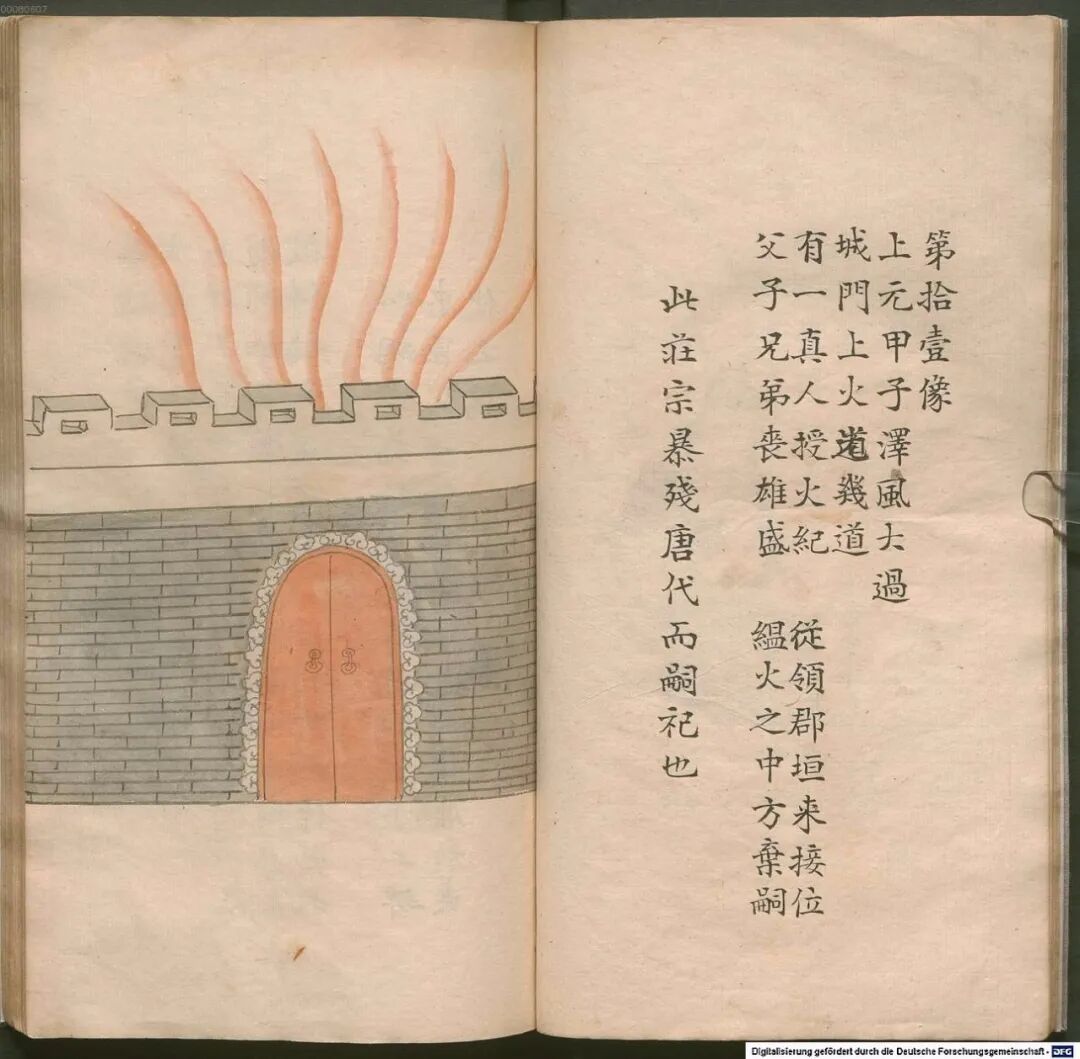 00080607
第拾壹像
上元甲子澤風大過
城門上火道幾道
有一真人授火紀 從領郡垣来接位
父子兄弟喪雄盛 縕火之中方棄嗣
此莊宗暴殘唐代而嗣祀也
Digitalisierung gefördert durch die Deutsche Forschungsgemeinschaft - DFG